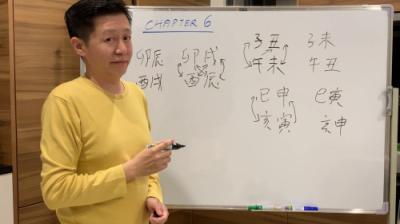 CHAPTER 6
卯辰 卯戌 子丑 子未
酉戌 酉辰 午未 午丑
巳申 巳寅
亥寅 亥申